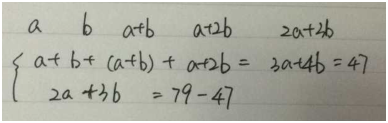 a b a+b a+2b 2a+3b
{ a+b+(a+b)+a+2b= 3a+4b=47
2a+3b =79-47